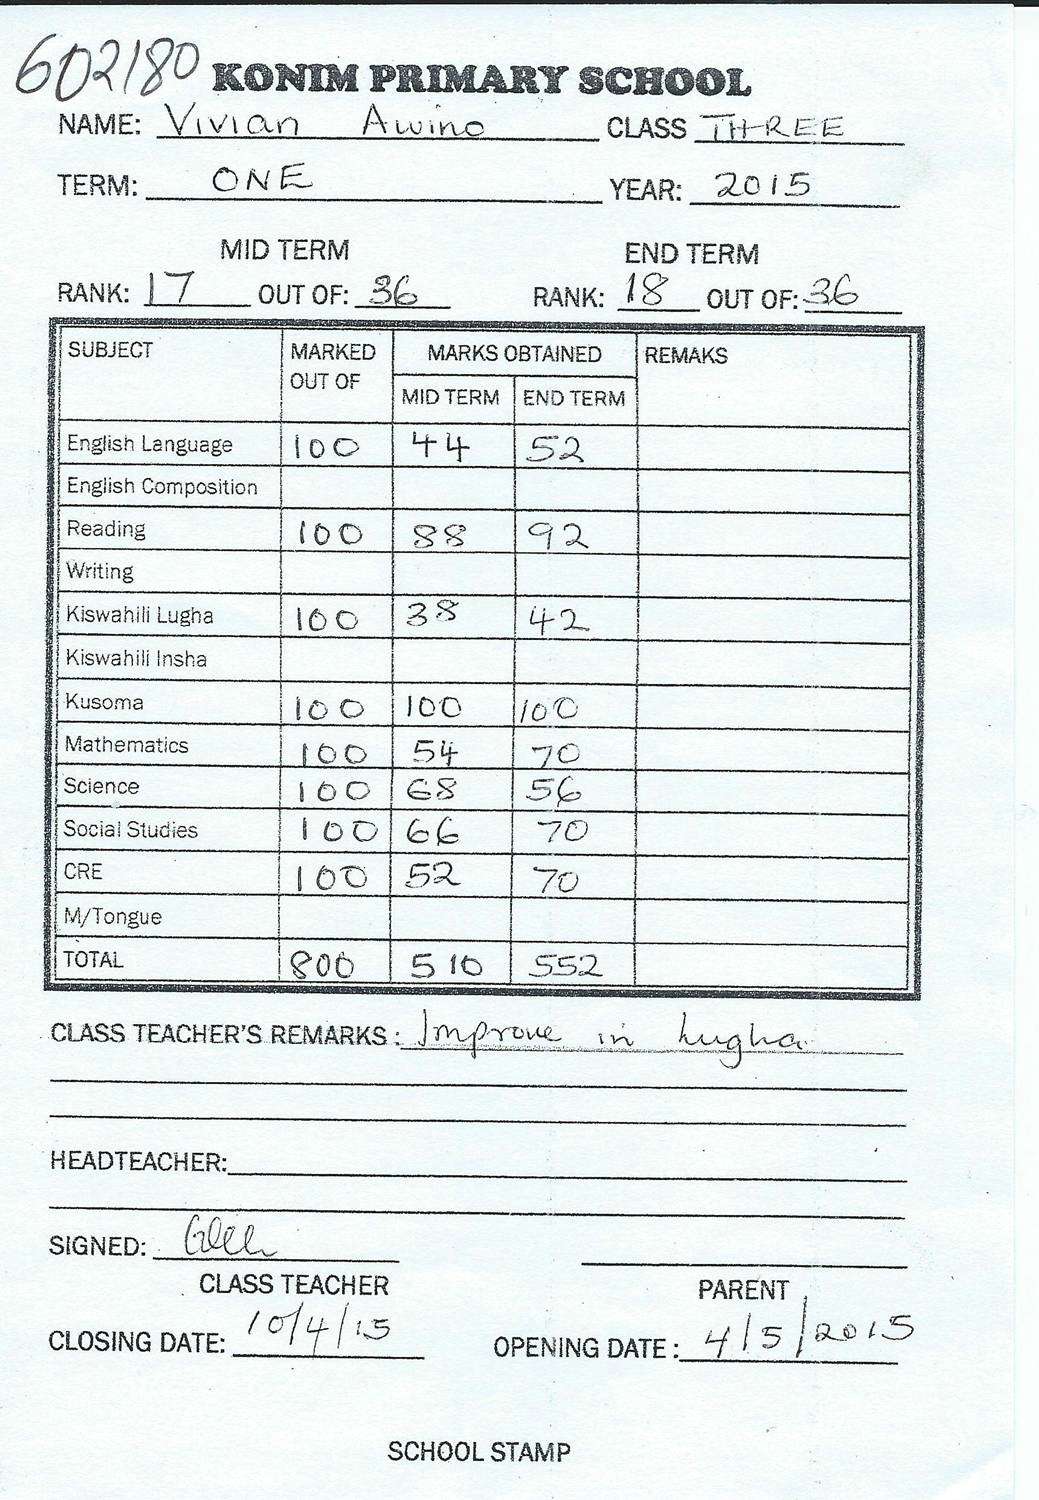 602180 KONIM PRIMARY SCHOOL
NAME: Vivian Awino CLASS THREE
TERM: ONE YEAR: 2015
MID TERM END TERM
RANK: 17 OUT OF: 36 RANK: 18 OUT OF: 36
SUBJECT MARKED OUT OF MARKS OBTAINED REMAKS
MID TERM END TERM
English Language 100 44 52
English Composition
Reading 100 88 92
Writing
Kiswahili Lugha 100 38 42
Kiswahili Insha
Kusoma 100 100 100
Mathematics 100 54 70
Science 100 68 56
Social Studies 100 66 70
CRE 100 52 70
M/Tongue
TOTAL 800 510 552
CLASS TEACHER'S REMARKS: Improve in Lugha.
HEADTEACHER:
SIGNED:
CLASS TEACHER PARENT
CLOSING DATE: 10/4/15 OPENING DATE: 4/5/2015
SCHOOL STAMP